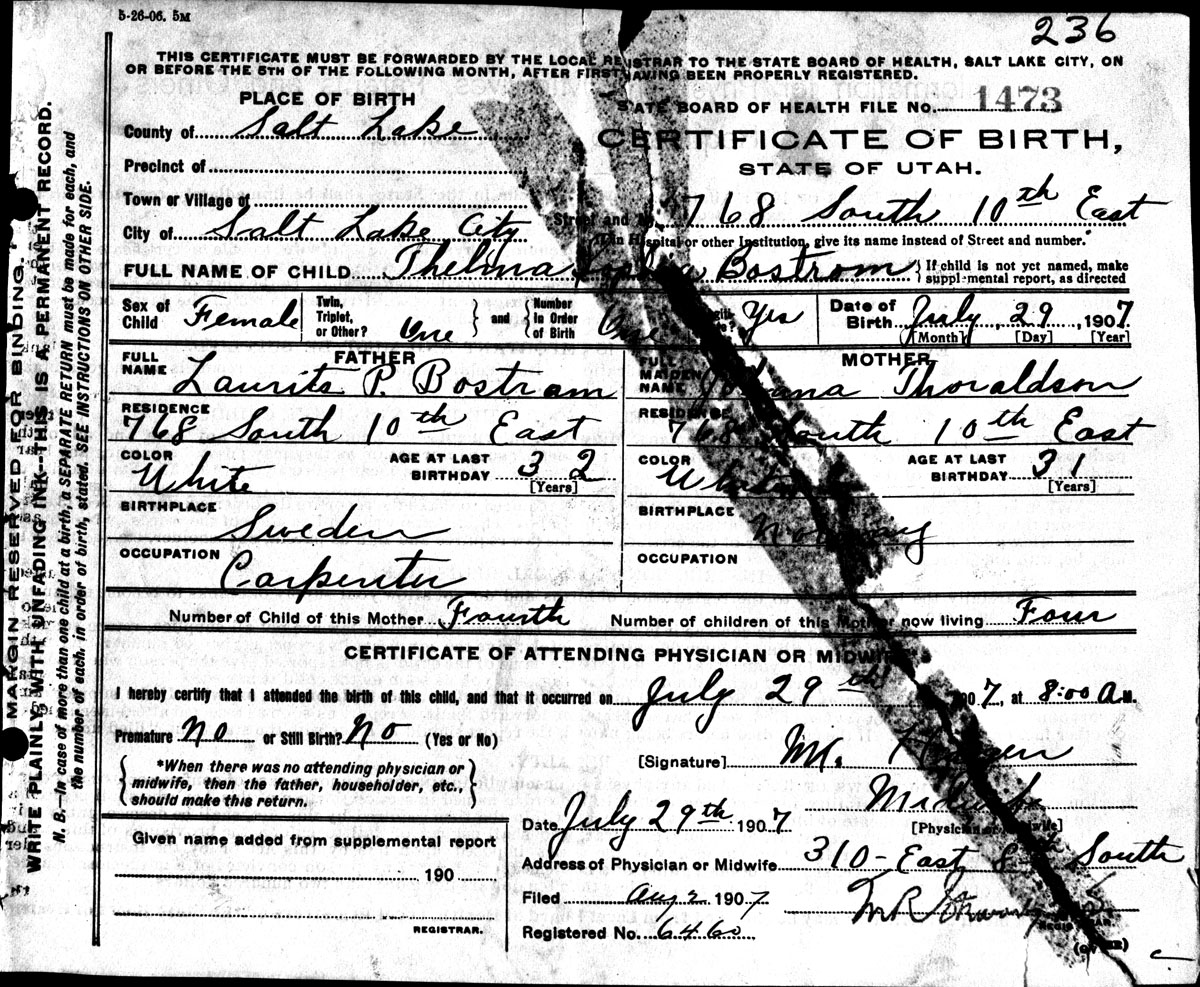 5-26-06. 5M
236
THIS CERTIFICATE MUST BE FORWARDED BY THE LOCAL REGISTRAR TO THE STATE BOARD OF HEALTH, SALT LAKE CITY, ON
OR BEFORE THE 5TH OF THE FOLLOWING MONTH, AFTER FIRST HAVING BEEN PROPERLY REGISTERED.
PLACE OF BIRTH
STATE BOARD OF HEALTH FILE No. 1473
County of Salt Lake
CERTIFICATE OF BIRTH,
STATE OF UTAH.
Precinct of
Town or Village of
Street and No. 768 South 10th East
City of Salt Lake City
[If in Hospital or other Institution, give its name instead of Street and number.
FULL NAME OF CHILD Thelma Sophia Bostrom
If child is not yet named, make
supplemental report, as directed
Sex of Child Female
Twin, Triplet, or Other? One
and
Number In Order of Birth One
Legiti-mate? Yes
Date of Birth July 29, 1907
[Month] [Day] [Year]
FATHER
FULL NAME Laurits P. Bostrom
RESIDENCE 768 South 10th East
COLOR White
AGE AT LAST BIRTHDAY 32
[Years]
BIRTHPLACE Sweden
OCCUPATION Carpenter
MOTHER
FULL MAIDEN NAME Thoraldson
RESIDENCE 768 South 10th East
COLOR White
AGE AT LAST BIRTHDAY 31
[Years]
BIRTHPLACE Norway
OCCUPATION
Number of Child of this Mother Fourth
Number of children of this Mother now living Four
CERTIFICATE OF ATTENDING PHYSICIAN OR MIDWIFE
I hereby certify that I attended the birth of this child, and that it occurred on July 29th 1907, at 8:00 A.M.
Premature No or Still Birth? No (Yes or No)
[Signature] M.
*When there was no attending physician or
midwife, then the father, householder, etc.,
should make this return.
Midwife
[Physician or Midwife]
Date July 29th 1907
Given name added from supplemental report
190
REGISTRAR.
Address of Physician or Midwife 310 - East 8th South
Filed Aug 2 1907
Registered No. 6460
(OVER)
MARGIN RESERVED FOR BINDING.
WRITE PLAINLY WITH UNFADING INK—THIS IS A PERMANENT RECORD.
N. B.—In case of more than one child at a birth, a SEPARATE RETURN must be made for each, and
the number of each, in order of birth, stated. SEE INSTRUCTIONS ON OTHER SIDE.